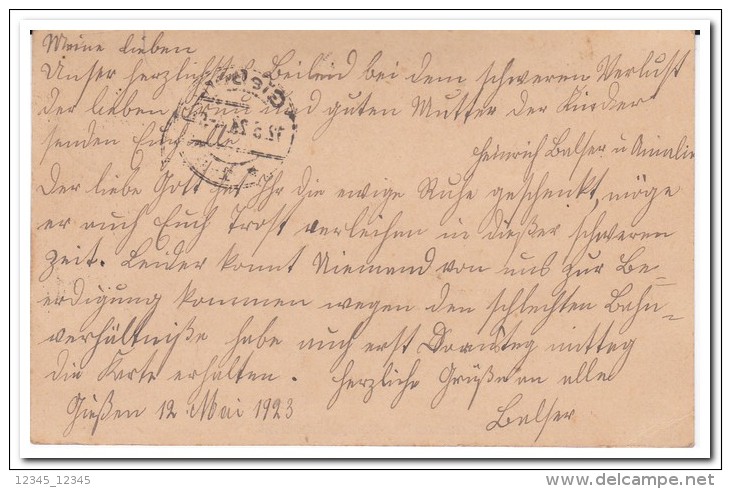 Meine Lieben
Unser herzlichstes Beileid bei dem schweren Verlust
der lieben und guten Mutter der Kinder
senden Euch
Heinrich Balser u Amalie
Der liebe Gott hat Ihr die ewige Ruhe geschenkt, möge
er auch Euch Trost verleihen in dießer schweren
Zeit. Leider konnt Niemand von uns zur Be-
erdigung kommen wegen den schlechten Bahn-
verhältniße habe auch erst mittag
die Karte erhalten. Herzliche Grüße an alle
Gießen 12 Mai 1923
Balser
12345_12345
delcampe.net